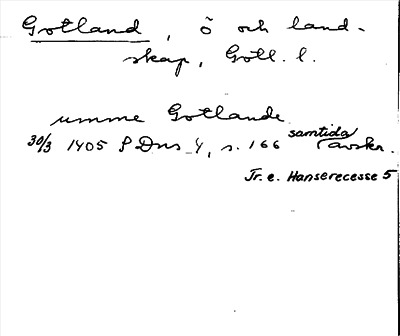 Gotland, ö och land-
skap, Gotl. l.
umme Gotlande
30/3 1405 P Dns 4, s. 166 samtida avskr.
Tr. e. Hanserecesse 5